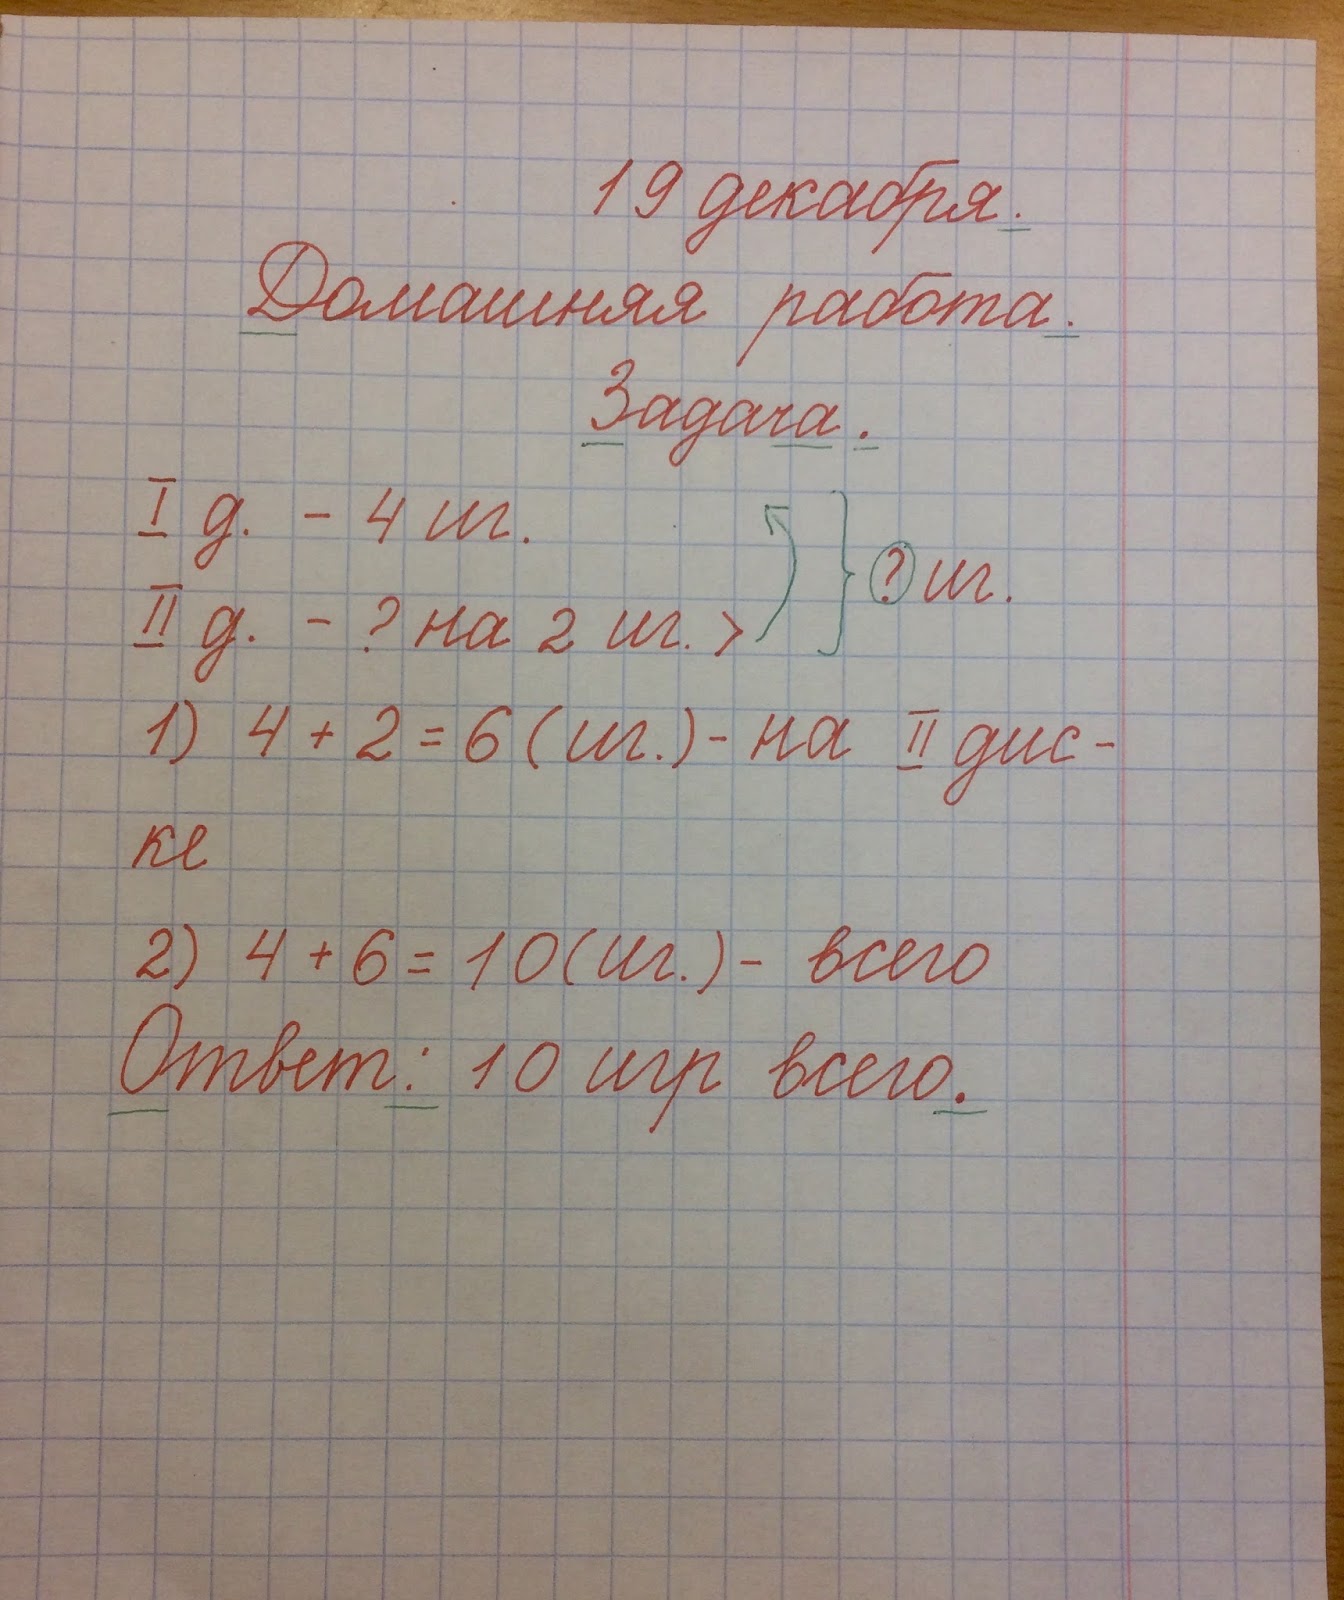 19 декабря.
Домашняя работа.
Задача.
I д. - 4 иг.
II д. - ? на 2 иг. >
? иг.
1) 4 + 2 = 6 (иг.) - на II дис-
ке
2) 4 + 6 = 10 (иг.) - всего
Ответ: 10 игр всего.